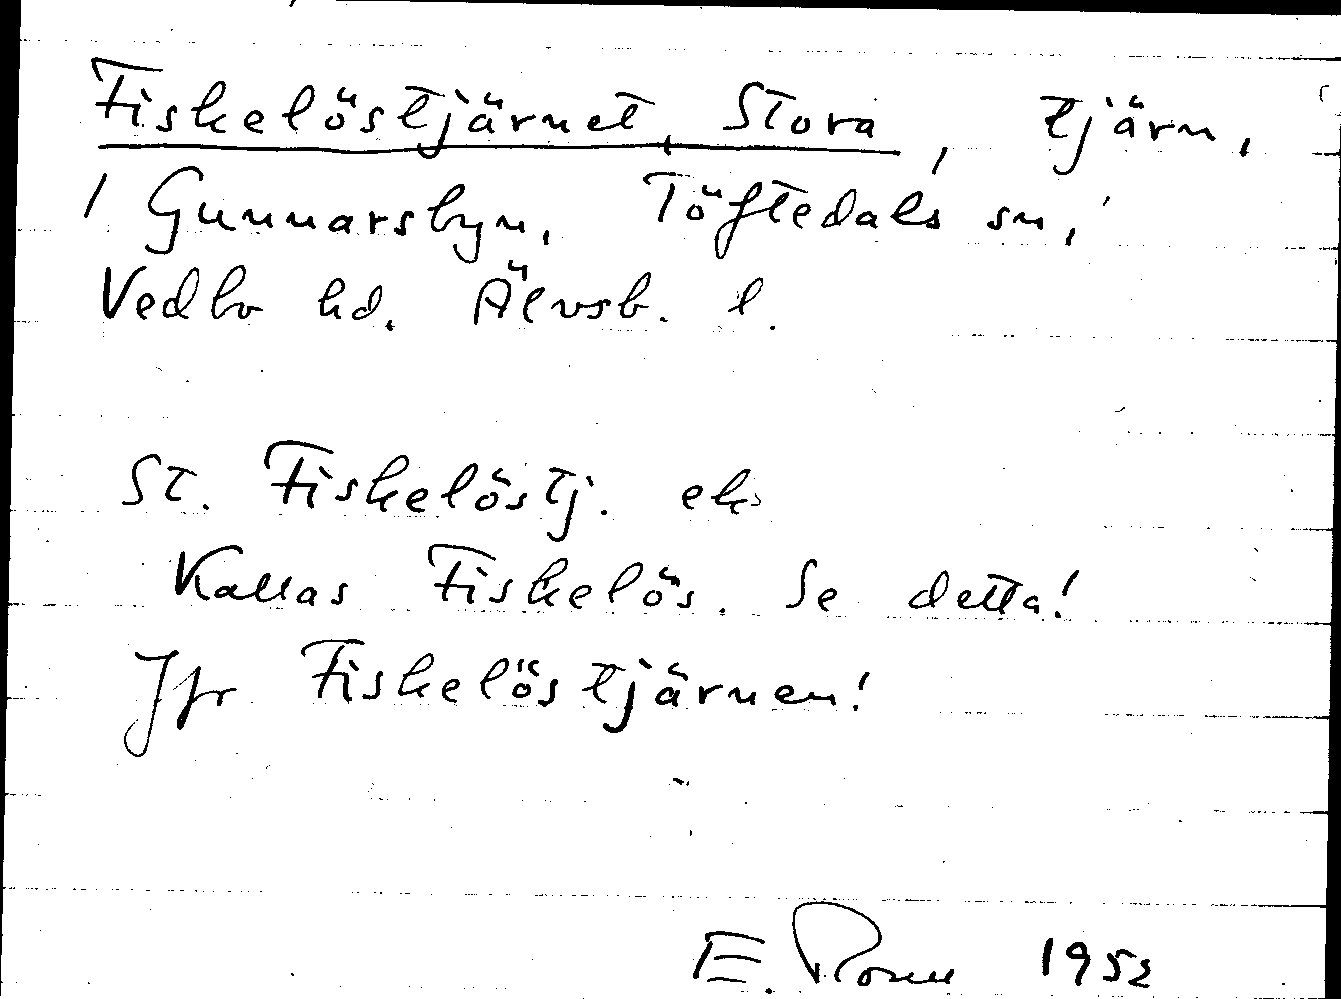 Fiskelöstjärnet, Stora, tjärn,
/ Gunnarsbyn, Töftedals sn,
Vedbo hd. Älvsb. l.
St. Fiskelöstj. ek
Kallas Fiskelös. Se detta!
Jfr Fiskelöstjärnen!
E. 1952